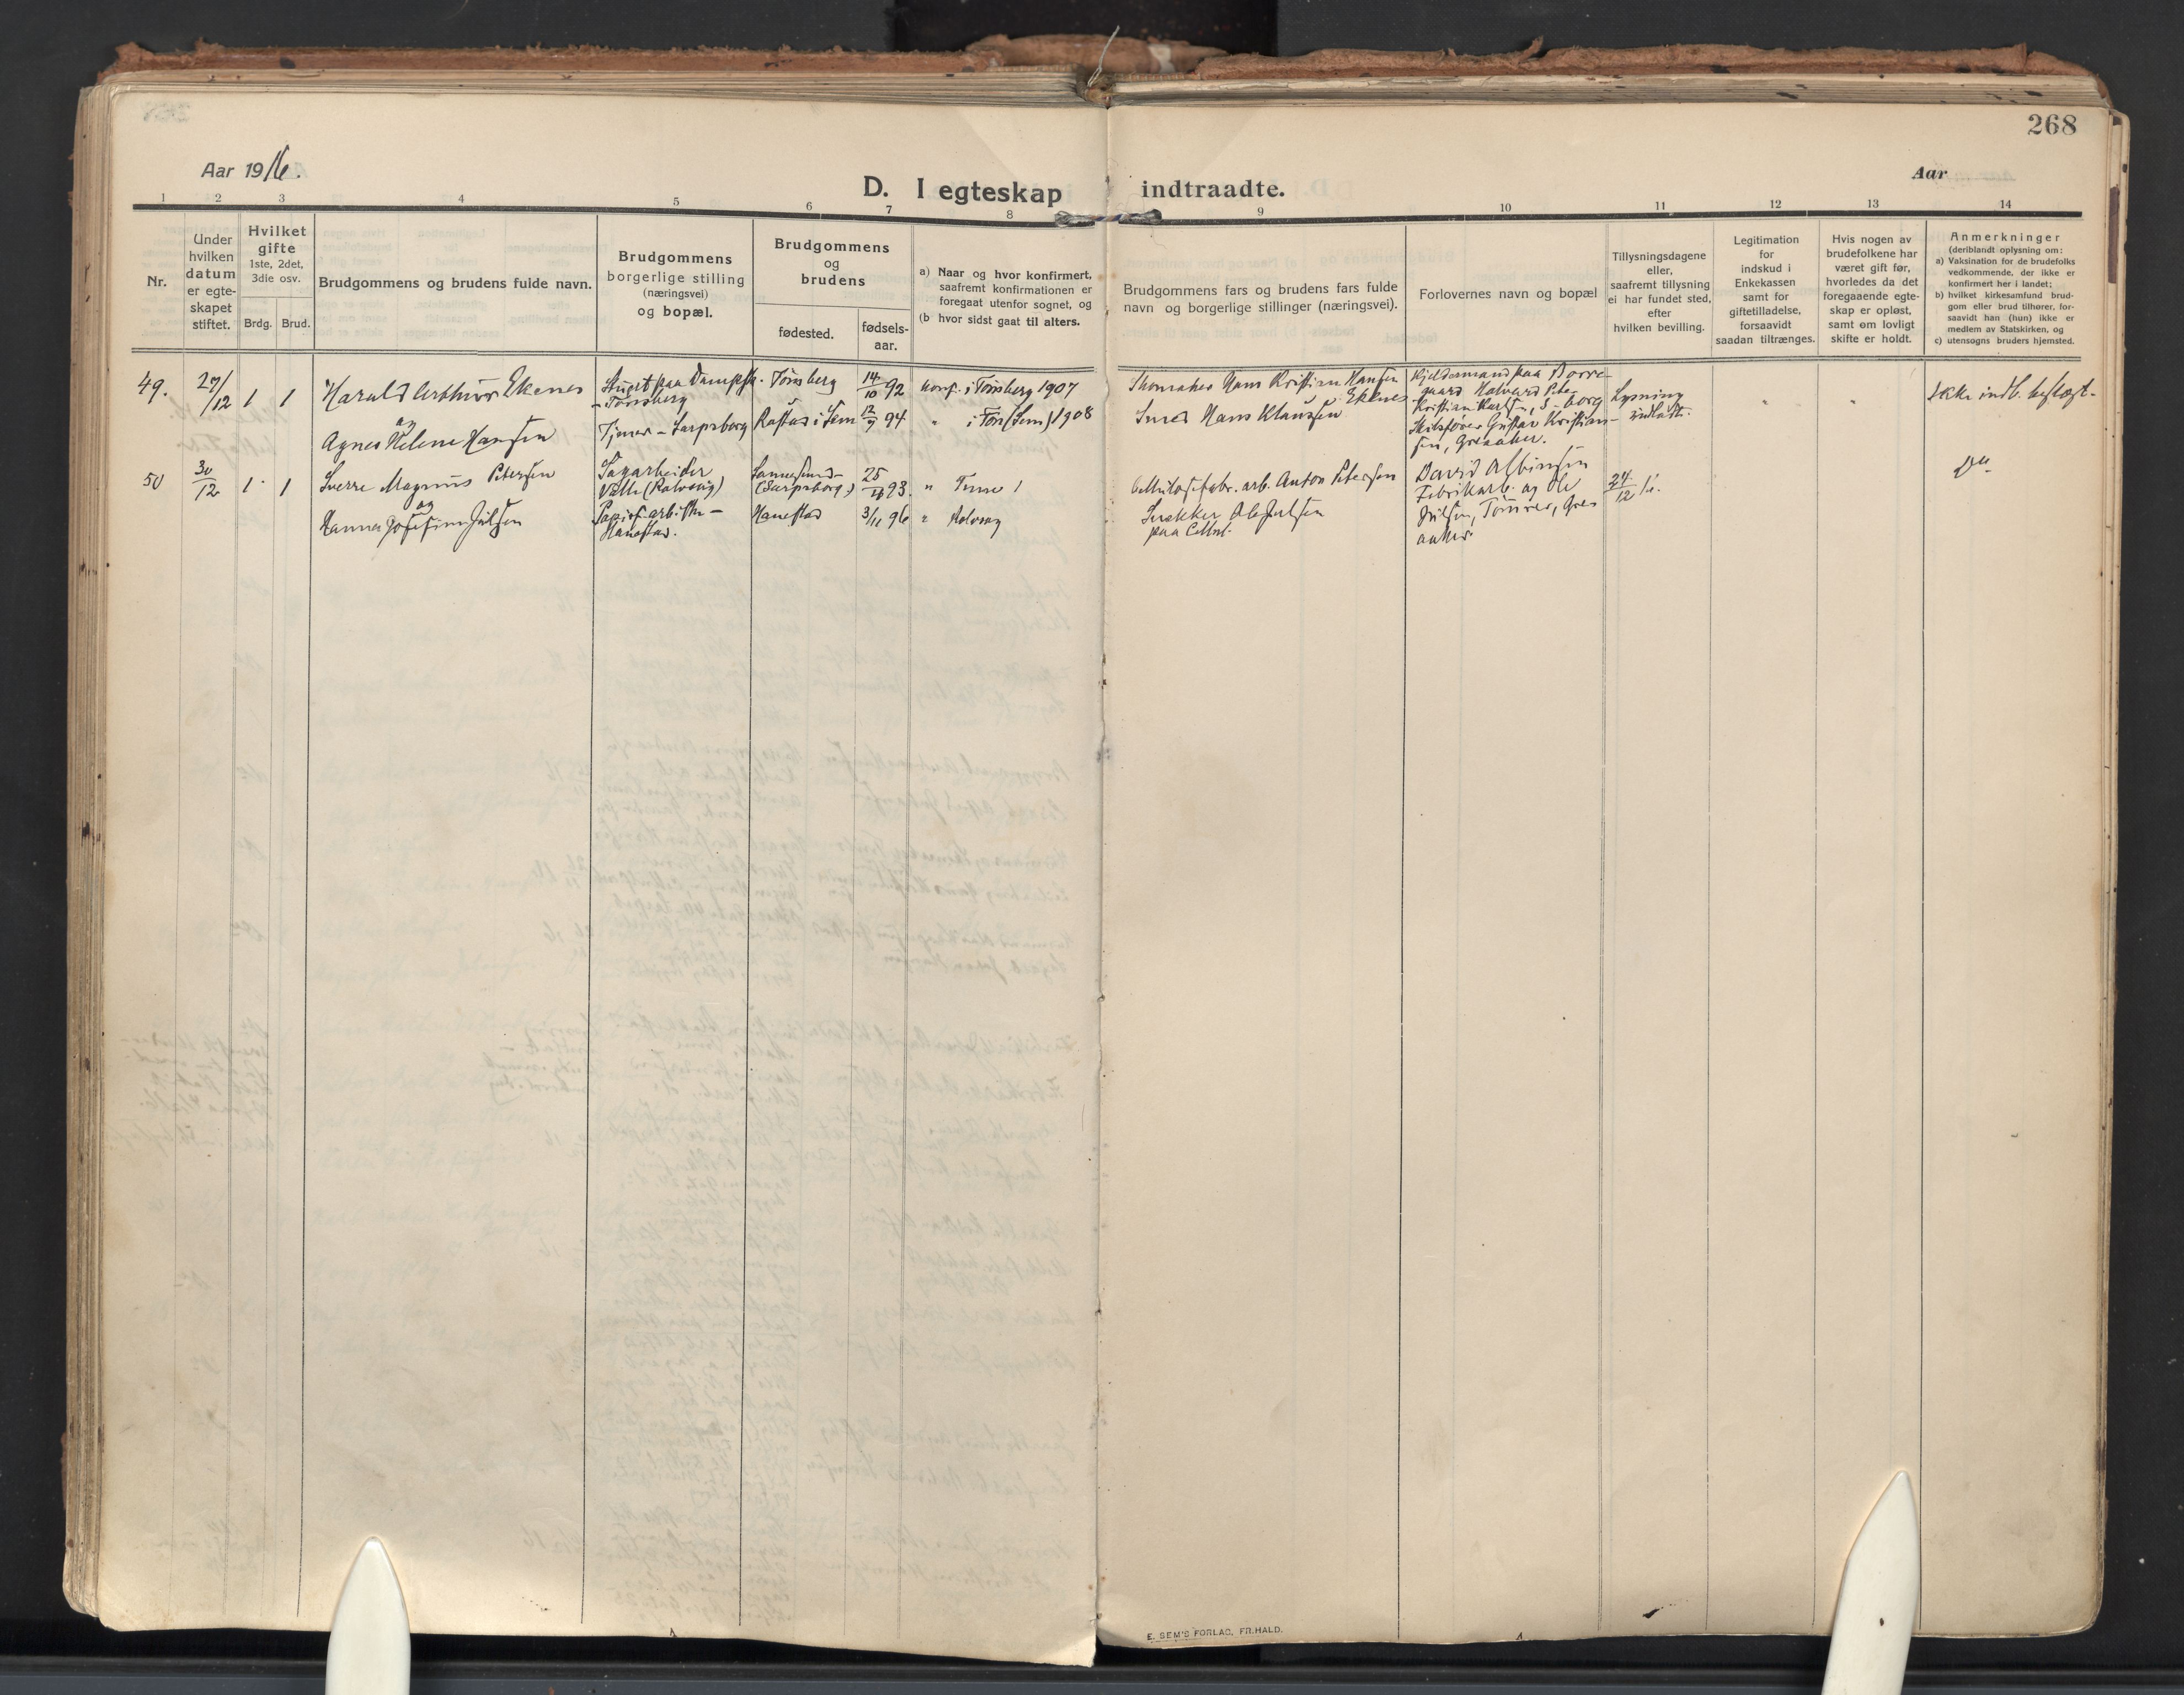 268
Aar 1916.
Aar
D. I egteskap indtraadte.
1 2 3 4 5 6 7 8 9 10 11 12 13 14
Nr.
Under
hvilken
datum
er egte-
skapet
stiftet.
Hvilket
gifte
1ste, 2det,
3die osv.
Brdg. Brud.
Brudgommens og brudens fulde navn.
Brudgommens
borgerlige stilling
(næringsvei)
og bopæl.
Brudgommens
og
brudens
fødested.
fødsels-
aar.
a) Naar og hvor konfirmert,
saafremt konfirmationen er
foregaat utenfor sognet, og
(b hvor sidst gaat til alters.
Brudgommens fars og brudens fars fulde
navn og borgerlige stillinger (næringsvei).
Forlovernes navn og bopæl
Tillysningsdagene
eller,
saafremt tillysning
ei har fundet sted,
efter
hvilken bevilling.
Legitimation
for
indskud i
Enkekassen
samt for
giftetilladelse,
forsaavidt
saadan tiltrænges.
Hvis nogen av
brudefolkene har
været gift før,
hvorledes da det
foregaaende egte-
skap er opløst,
samt om lovligt
skifte er holdt.
Anmerkninger
(deriblandt oplysning om:
a) Vaksination for de brudefolks
vedkommende, der ikke er
konfirmert her i landet;
b) hvilket kirkesamfund brud-
gom eller brud tilhører, for-
saavidt han (hun) ikke er
medlem av Statskirken, og
c) utensogns bruders hjemsted.
49.
27/12
1 1
Harald Arthur Ekenes
og
Agnes Helene Hansen
Stuert paa Dampsk.
- Tønsberg
Tjener - Sarpsborg
Tønsberg
Rastad i Sem
14/10 92
12/9 94
konf. i Tønsberg 1907
" i Tøns (Sem) 1908
Hans Kristian Hansen
Ekenes
Smed Hans Klausen
Kjeldermand paa Borre-
gaard Halvard Peter
Kristian Karlsen, S-borg
Skibsfører Gustav Kristian-
sen, Greaaker.
Lysning
indladt.
"
"
Ikke indb. beslægt.
50
30/12
1 1
Sverre Magnus Petersen
og
Hanna Josefine Julsen
Sagarbeider
Valle (Rolvsøy)
Papirf. arbske -
Hanestad.
Sannesund
(Sarpsborg)
Hanestad
25/ 93
3/11 96
" Tune
" Rolvsøy
Cellulosefabr. arb. Anton Petersen
Snekker Ole Julsen
paa Cellul.
David Albinsen
Fabrikarb. og Ole
Julsen, Tømrer, Gre-
aaker.
24/12 16.
Do
E. SEM'S FORLAG, FR.HALD.